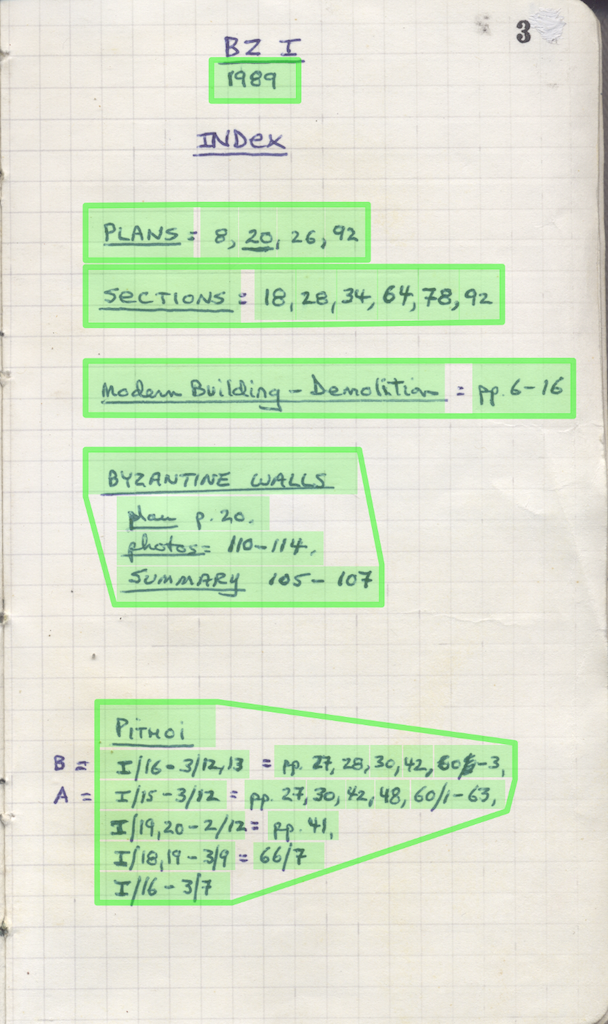 3
BZ I
1989
INDex
PLANS = 8, 20, 26, 92
SECTIONS = 18, 28, 34, 64, 78, 92
Modern Building - Demolition = pp. 6-16
BYZANTINE WALLS
plan p. 20.
photos = 110-114.
SUMMARY 105-107
PITHOI
B = I/16-3/12,13 = pp. 27, 28, 30, 42, 60-3,
A = I/15-3/12 = pp. 27, 30, 42, 48, 60/1-63,
I/19,20-2/12 = pp. 41,
I/18,19-3/9 = 66/7
I/16-3/7